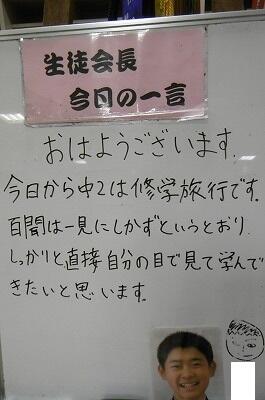 生徒会長
今日の一言
おはようございます。
今日から中2は修学旅行です。
百聞は一見にしかずというとおり
しっかりと直接自分の目で見て学んで
きたいと思います。